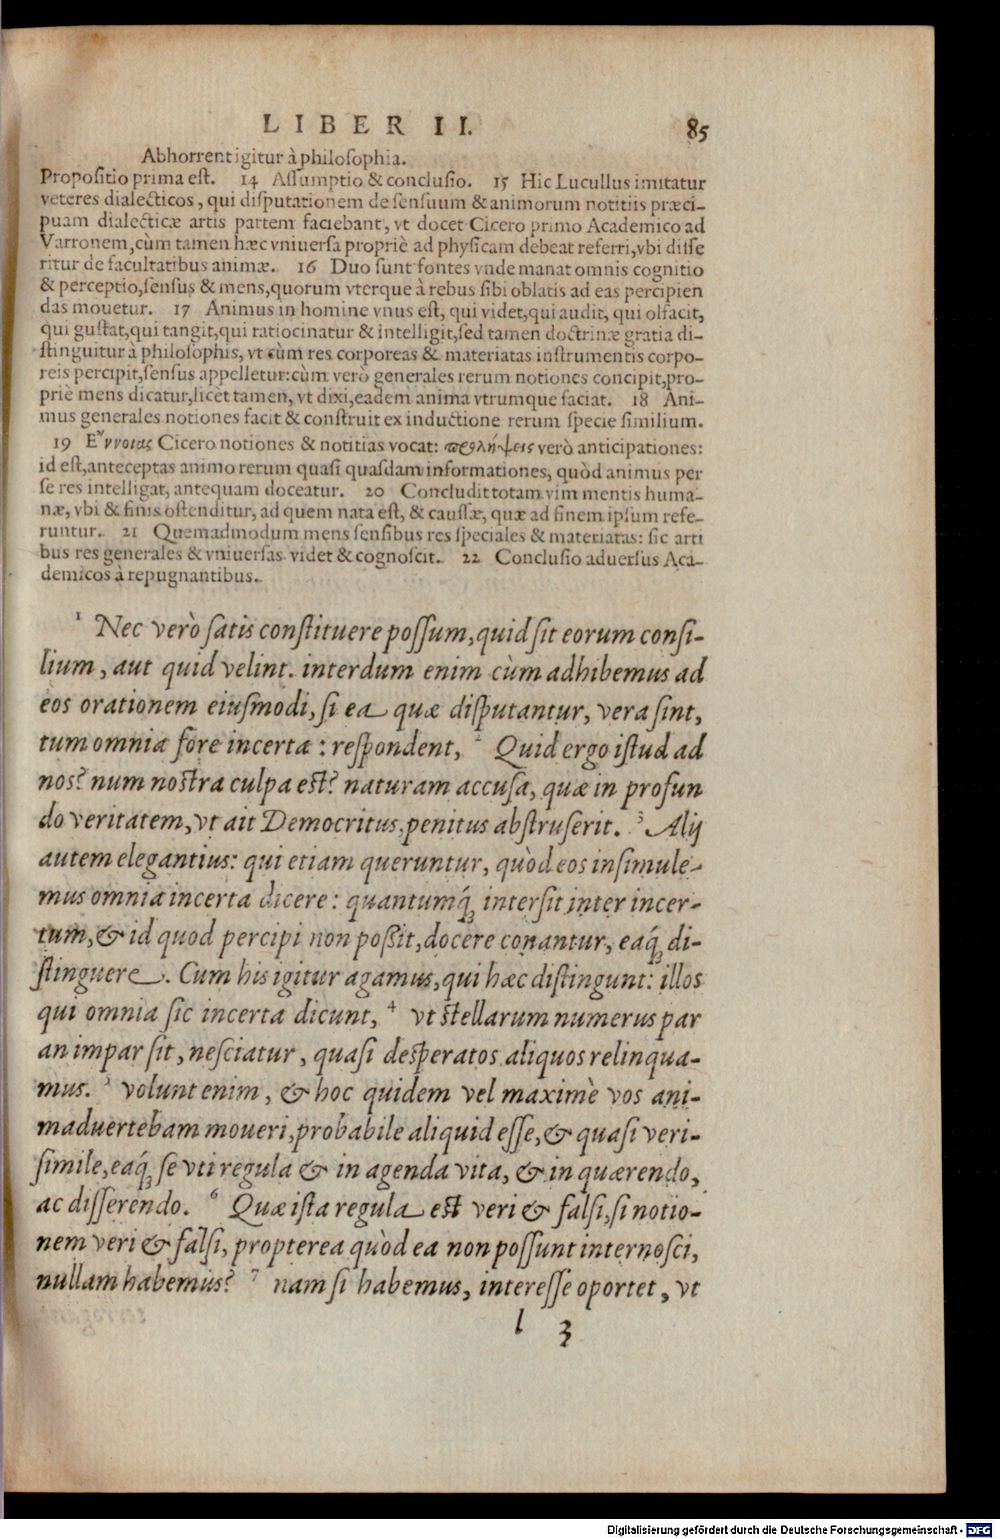 LIBER II. 85
Abhorrent igitur à philosophia.
Propositio prima est. 14 Assumptio & conclusio. 15 Hic Lucullus imitatur
veteres dialecticos, qui disputationem de sensuum & animorum notitiis præci-
puam dialecticæ artis partem faciebant, vt docet Cicero primo Academico ad
Varronem, cùm tamen hæc vniuersa propriè ad physicam debeat referri, vbi disse
ritur de facultatibus animæ. 16 Duo sunt fontes vnde manat omnis cognitio
& perceptio, sensus & mens, quorum vterque à rebus sibi oblatis ad eas percipien
das mouetur. 17 Animus in homine vnus est, qui videt, qui audit, qui olfacit,
qui gustat, qui tangit, qui ratiocinatur & intelligit, sed tamen doctrinæ gratia di-
stinguitur à philosophis, vt cùm res corporeas & materiatas instrumentis corpo-
reis percipit, sensus appelletur: cùm verò generales rerum notiones concipit, pro-
priè mens dicatur, licet tamen, vt dixi, eadem anima vtrumque faciat. 18 Ani-
mus generales notiones facit & construit ex inductione rerum specie similium.
19 Ἐννοιας Cicero notiones & notitias vocat: προλήψεις verò anticipationes:
id est, anteceptas animo rerum quasi quasdam informationes, quòd animus per
se res intelligat, antequam doceatur. 20 Concludit totam vim mentis huma-
næ, vbi & finis ostenditur, ad quem nata est, & caussæ, quæ ad finem ipsum refe-
runtur. 21 Quemadmodum mens sensibus res speciales & materiatas: sic arti
bus res generales & vniuersas videt & cognoscit. 22 Conclusio aduersus Aca-
demicos à repugnantibus.
1 Nec verò satis constituere possum, quid sit eorum consi-
lium, aut quid velint. interdum enim cùm adhibemus ad
eos orationem eiusmodi, si ea quæ disputantur, vera sint,
tum omnia fore incerta: respondent, 2 Quid ergo istud ad
nos? num nostra culpa est? naturam accusa, quæ in profun
do veritatem, vt ait Democritus, penitus abstruserit. 3 Alij
autem elegantius: qui etiam queruntur, quòd eos insimule-
mus omnia incerta dicere: quantumq́; intersit inter incer-
tum, & id quod percipi non possit, docere conantur, eaq́; di-
stinguere. Cum his igitur agamus, qui hæc distingunt: illos
qui omnia sic incerta dicunt, 4 vt stellarum numerus par
an impar sit, nesciatur, quasi desperatos aliquos relinqua-
mus. 5 volunt enim, & hoc quidem vel maximè vos ani-
maduertebam moueri, probabile aliquid esse, & quasi veri-
simile, eaq́; se vti regula & in agenda vita, & in quærendo,
ac disserendo. 6 Quæ ista regula est veri & falsi, si notio-
nem veri & falsi, propterea quòd ea non possunt internosci,
nullam habemus? 7 nam si habemus, interesse oportet, vt
l 3
Digitalisierung gefördert durch die Deutsche Forschungsgemeinschaft - DFG